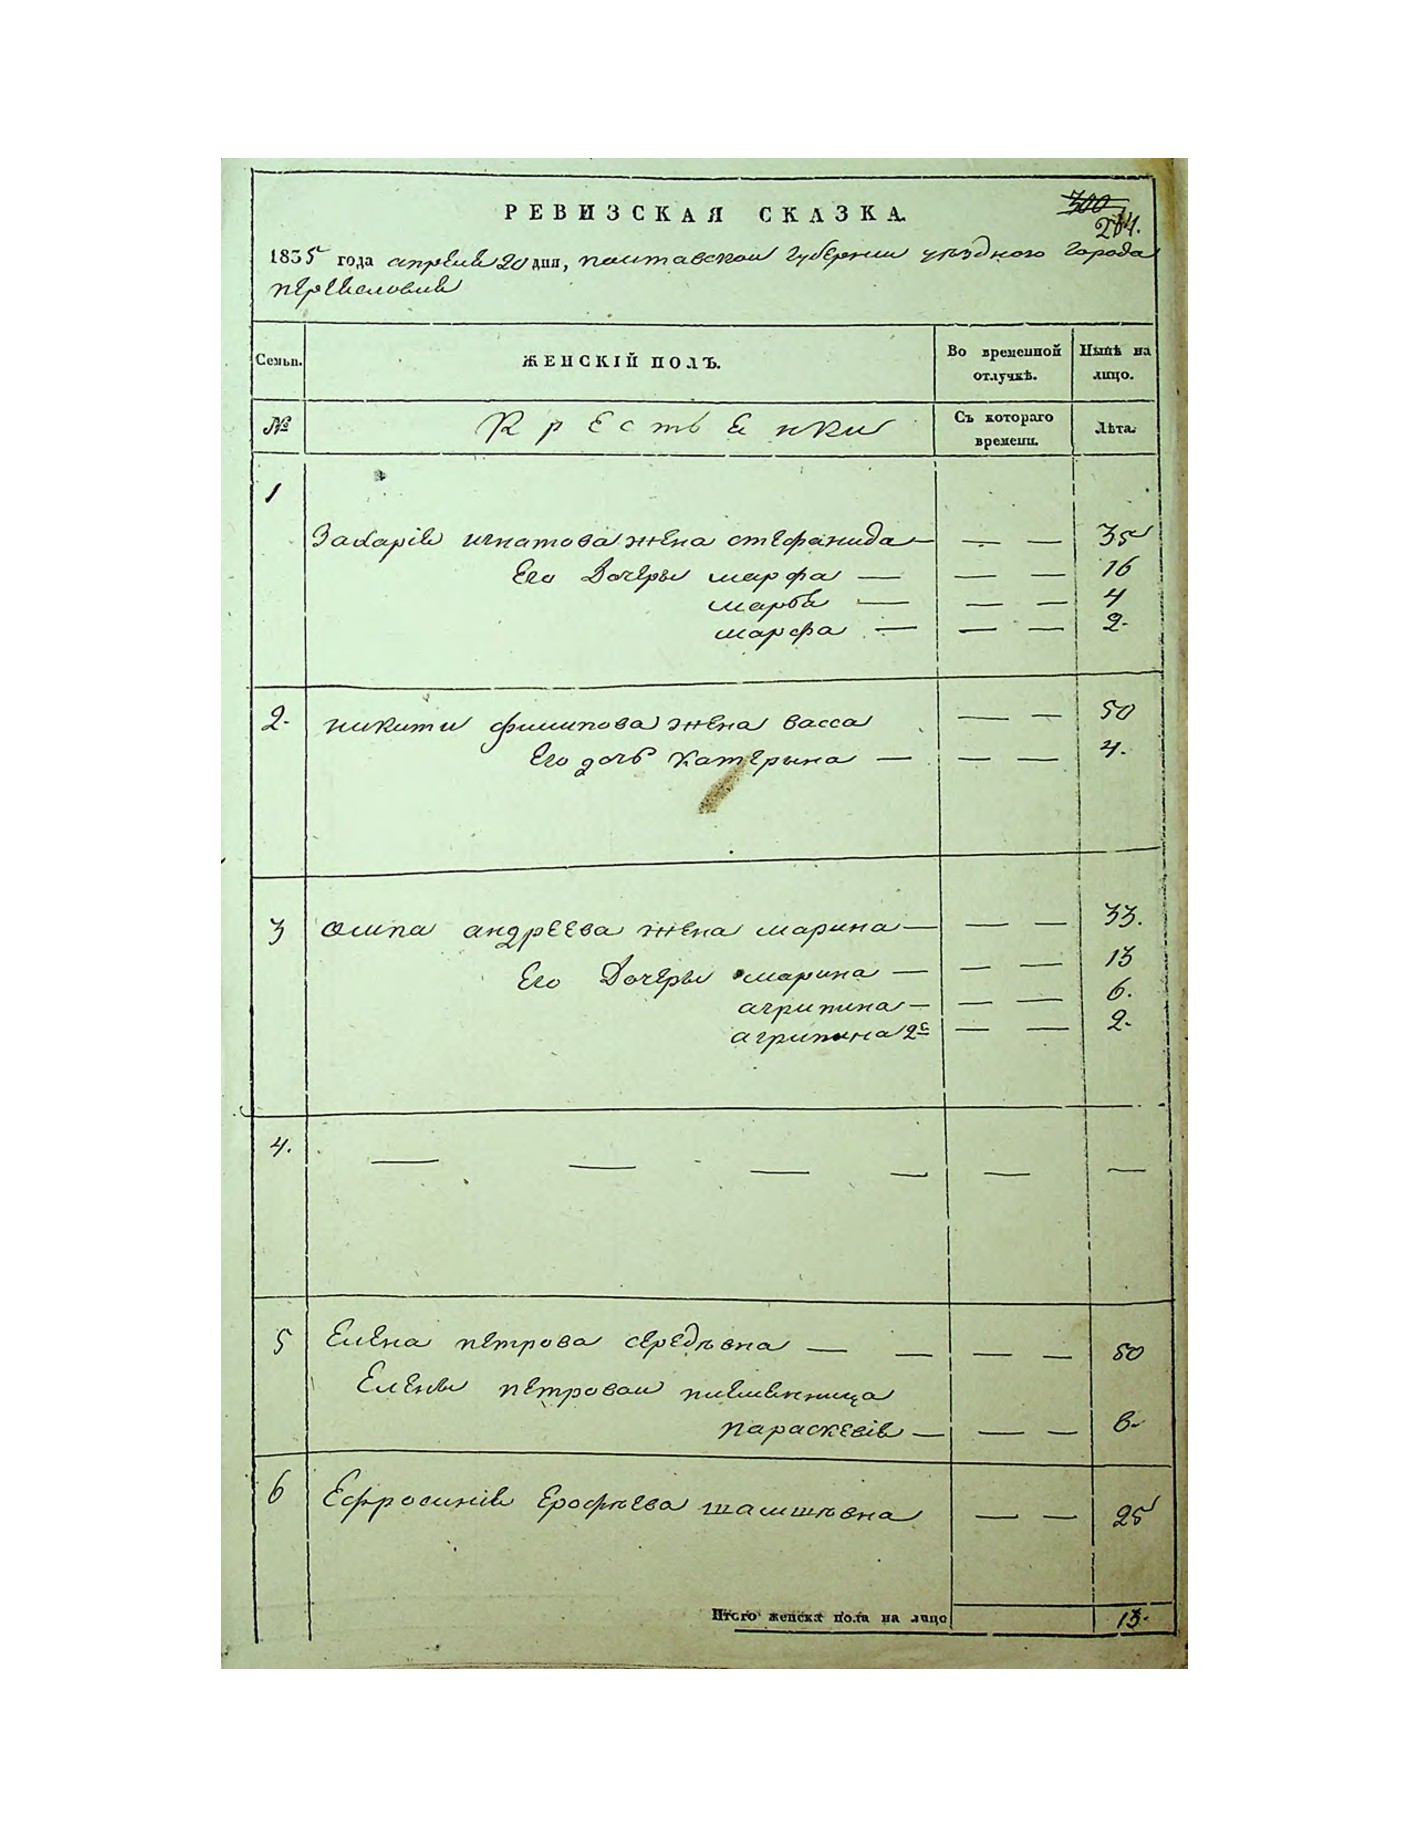 РЕВИЗСКАЯ СКАЗКА.
300
264.
1835 года апреля 20 дня, полтавской губернии уѣздного города
переяславля
Семьи. ЖЕНСКІЙ ПОЛЪ. Во временной отлучкѣ. Нынѣ на лицо.
№ Крестьянки Съ котораго времени. Лѣта.
1
Захарія игнатова жена стефанида — — — 35
Его Дочеры марфа — — — 16
марья — — — 4
марфа — — — 2.
2. никити филипова жена васса — — 50
Его дочь катерына — — — 4.
3 андреева жена марина — — — 33.
Его Дочеры марина — — — 13
агрипина — — — 6.
агрипина 2я — — 2.
4. — — — — — —
5 Елена петрова середѣвна — — — — 50
Елены петровой племѣнница
параскевія — — — 8.
6 Ефросинія Ерофѣева — — 25
Итого женска пола на лицо 13.